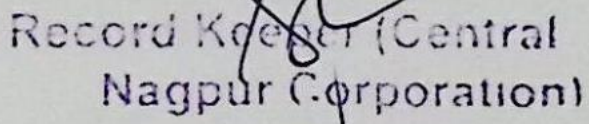 Record Keeper (Central
Nagpur Corporation)